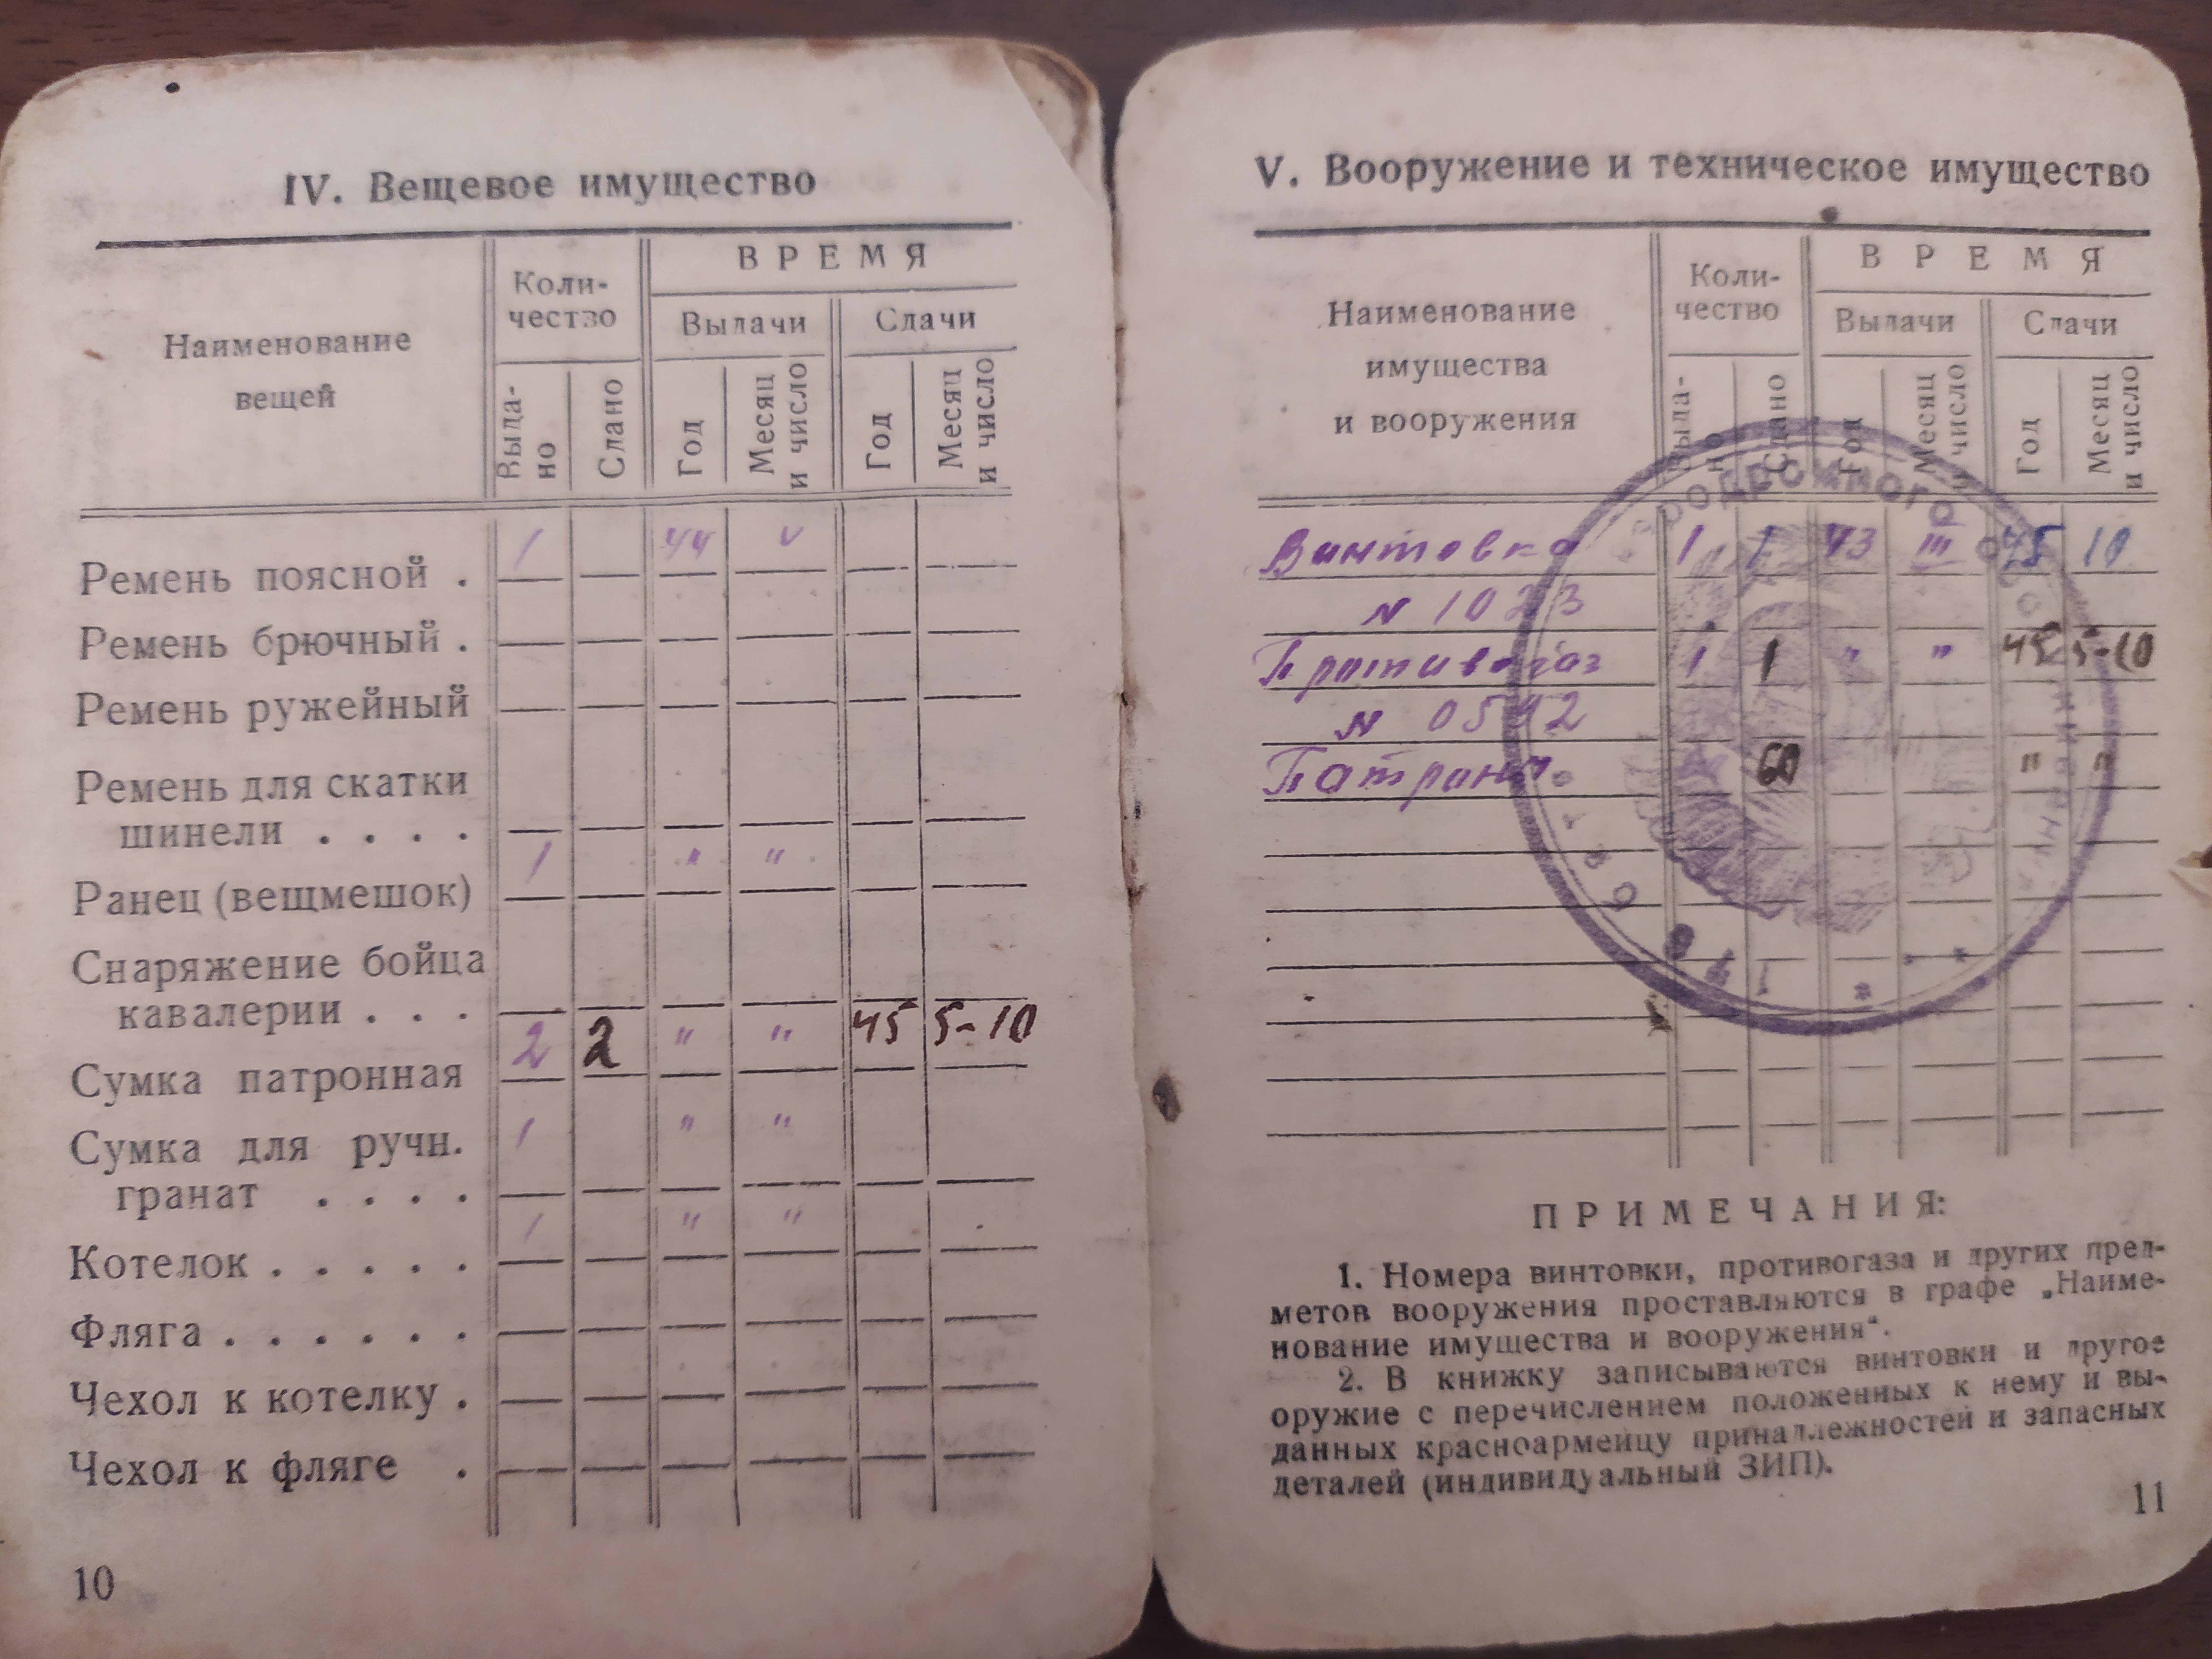 IV. Вещевое имущество
Наименование
вещей
Коли-
чество
ВРЕМЯ
Выдачи
Сдачи
Выда-
но
Сдано
Год
Месяц
и число
Год
Месяц
и число
1 44 V
Ремень поясной .
Ремень брючный .
Ремень ружейный
Ремень для скатки
шинели . . . .
1 " "
Ранец (вещмешок)
Снаряжение бойца
кавалерии . . .
2 2 " " 45 5-10
Сумка патронная
1 " "
Сумка для ручн.
гранат . . . .
1 " "
Котелок . . . . .
Фляга . . . . . .
Чехол к котелку .
Чехол к фляге .
10
V. Вооружение и техническое имущество
Наименование
имущества
и вооружения
Коли-
чество
ВРЕМЯ
Выдачи
Сдачи
Выда-
но
Сдано
Год
Месяц
и число
Год
Месяц
и число
Винтовка 1 1 43 III 45 10
N 1023
Противогаз 1 1 " " 45 5-10
N 0542
Патроны 60 " "
ПРИМЕЧАНИЯ:
1. Номера винтовки, противогаза и других пред-
метов вооружения проставляются в графе „Наиме-
нование имущества и вооружения“.
2. В книжку записываются винтовки и другое
оружие с перечислением положенных к нему и вы-
данных красноармейцу принадлежностей и запасных
деталей (индивидуальный ЗИП).
11